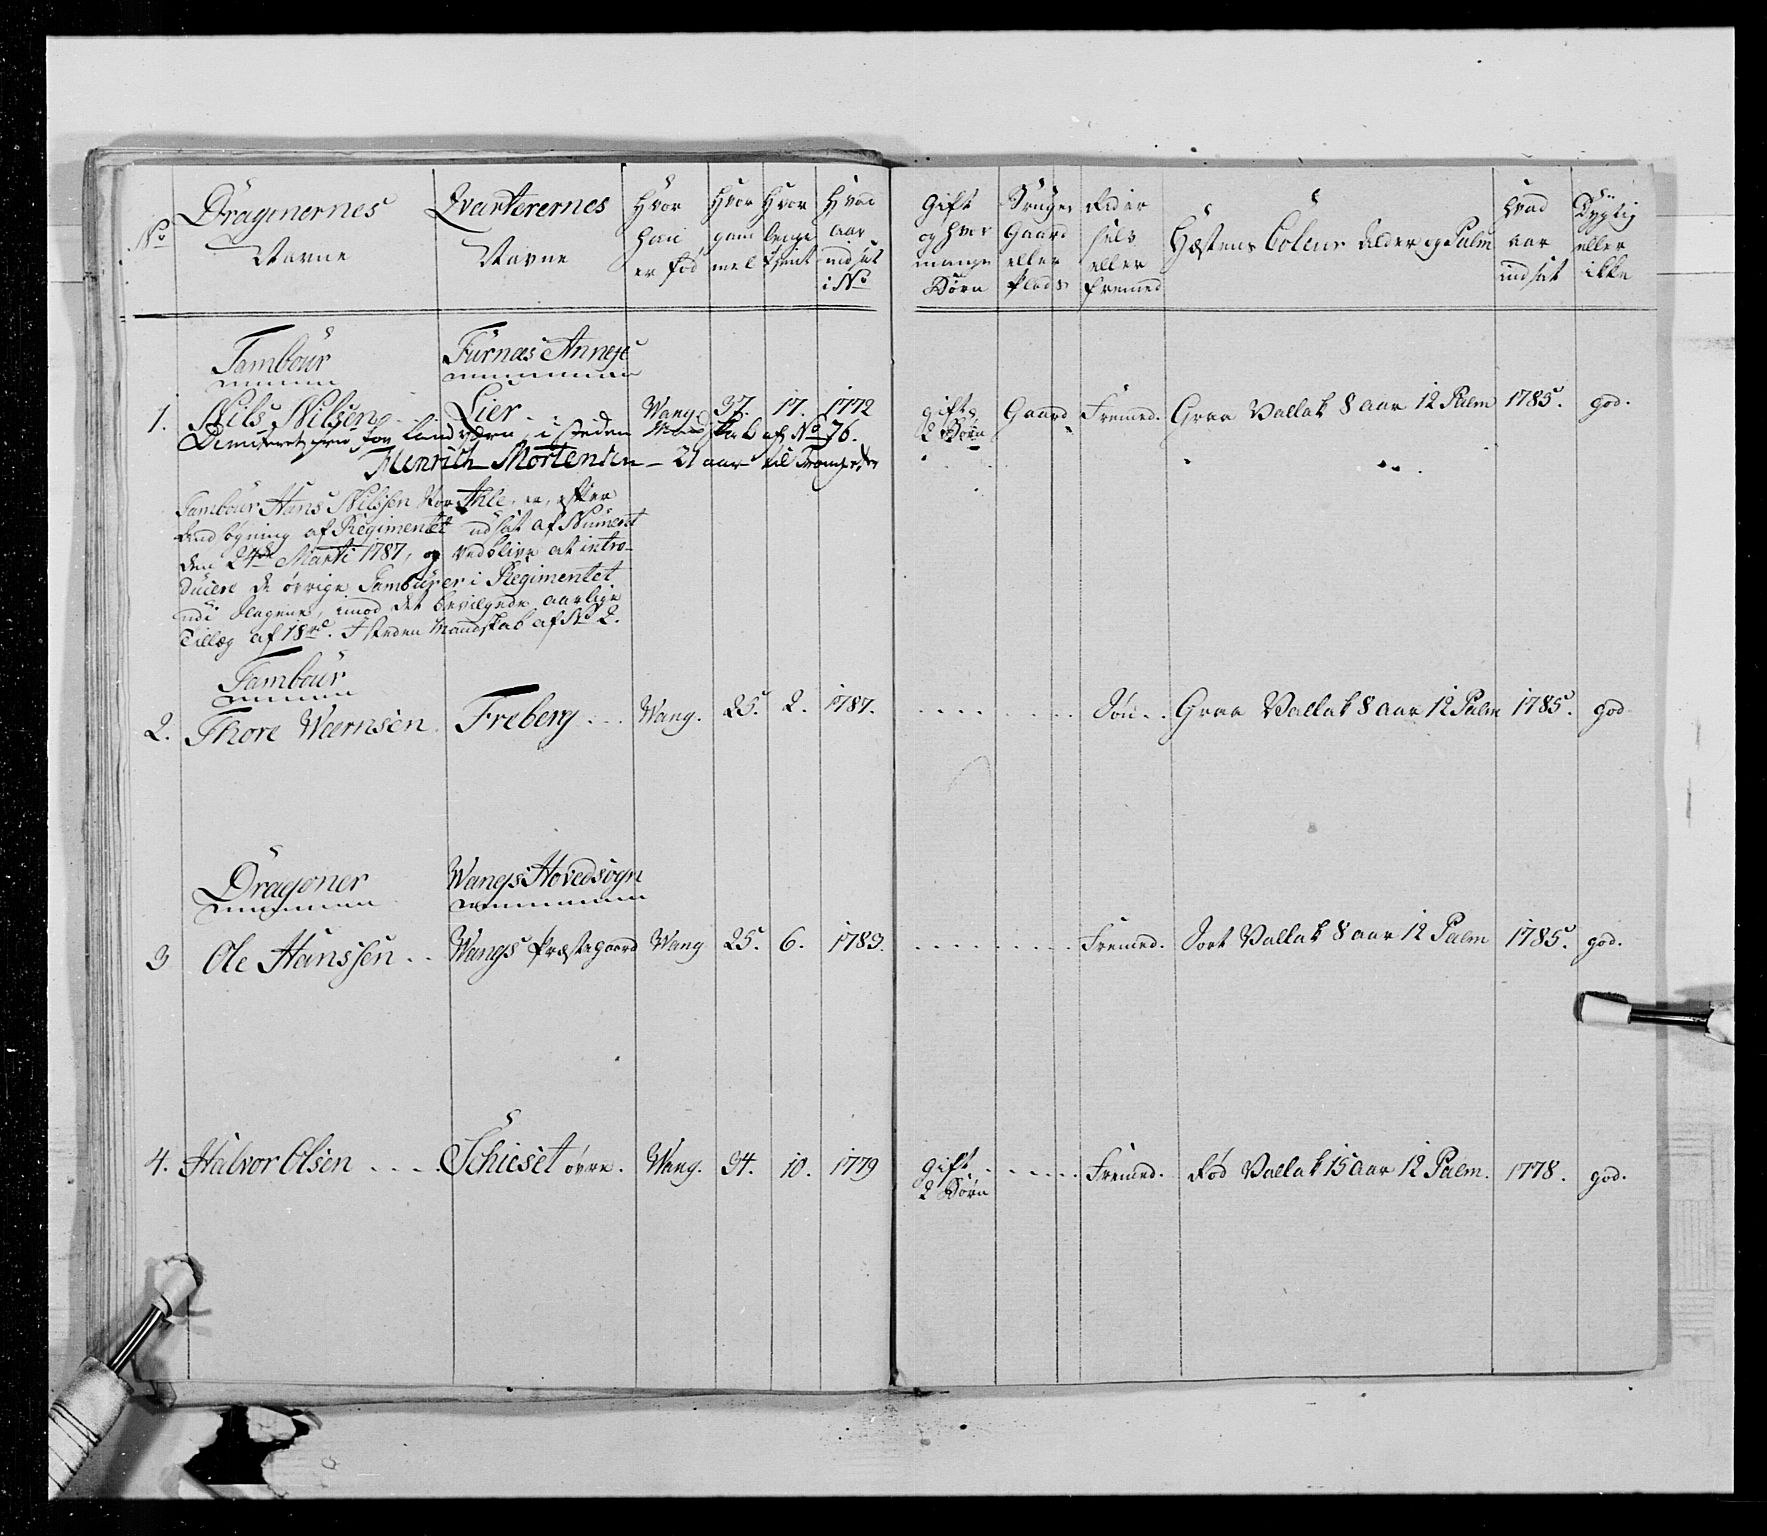 No
Dragonernes Navne
Qvarterernes Navne
Hvor han er fød
Hvor gammel
Hvor lenge tient
Hvad aar indsat i No
Gift og hvor mange Børn
Bruger Gaard eller Plads
Rider selv eller fremmed
Hæstens Coleur Alder og Palm
Hvad aar indsat
Dygtig eller ikke
Tambour
Furnæs Annexe
1. Nils Nilsen Lier Wang 37. 17. 1772 gift 2 Børn Gaard Fremed. Graa Vallak 8 aar 12 Palm 1785. god.
Dimiteret for Landværn, i steden Mandskab af No 76.
Henrich Mortensen - 21 aar til
Tambour Hans Nilssen Ihle, er, efter
af Regimentet udsat af Numeret
den 24de Marti 1787, og vedblive at intro-
ducere de øvrige Tambourer i Regimentet
udi Slagene, imod det bevilgede aarlige
Tillæg af 18 rd. I steden Mandskab af No 2.
Tambour
2. Thore Wærnsen Freberg Wang. 25. 2. 1787. Søn Graa Vallak 8 aar 12 Palm 1785. god
Dragoner
Wangs Hovedsogn
3 Ole Hanssen Wangs Præstegaard Wang 25. 6. 1783. Fremed. Sort Vallak 8 aar 12 Palm 1785. god.
4. Halvor Olsen Schieset øvre. Wang. 34. 10. 1779 gift 2 Børn Fremed. Rød Vallak 15 aar 12 Palm. 1778. god.